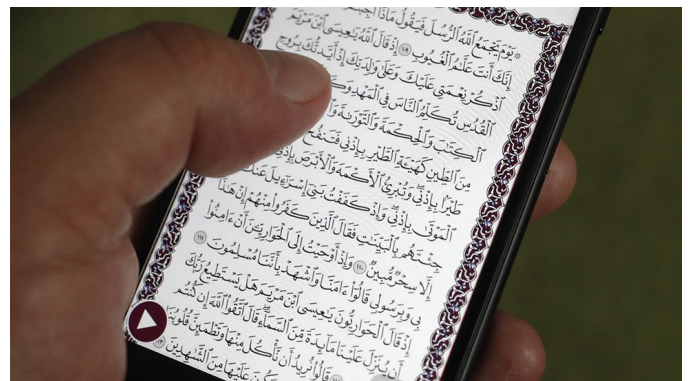 ۞ يَوْمَ يَجْمَعُ ٱللَّهُ ٱلرُّسُلَ فَيَقُولُ مَاذَآ
إِنَّكَ أَنتَ عَلَّٰمُ ٱلْغُيُوبِ ١٠٩ إِذْ قَالَ ٱللَّهُ يَٰعِيسَى ٱبْنَ مَرْيَمَ
ٱذْكُرْ نِعْمَتِي عَلَيْكَ وَعَلَىٰ وَٰلِدَتِكَ إِذْ أَيَّدتُّكَ بِرُوحِ
ٱلْقُدُسِ تُكَلِّمُ ٱلنَّاسَ فِي ٱلْمَهْدِ
ٱلْكِتَٰبَ وَٱلْحِكْمَةَ وَٱلتَّوْرَىٰةَ
مِنَ ٱلطِّينِ كَهَيْـَٔةِ ٱلطَّيْرِ بِإِذْنِي فَتَنفُخُ
طَيْرًۢا بِإِذْنِي وَتُبْرِئُ ٱلْأَكْمَهَ وَٱلْأَبْرَصَ
ٱلْمَوْتَىٰ بِإِذْنِي وَإِذْ كَفَفْتُ بَنِيٓ إِسْرَٰٓءِيلَ عَنكَ
جِئْتَهُم بِٱلْبَيِّنَٰتِ فَقَالَ ٱلَّذِينَ كَفَرُوا۟ مِنْهُمْ إِنْ هَٰذَآ
إِلَّا سِحْرٌ مُّبِينٌ ١١٠ وَإِذْ أَوْحَيْتُ إِلَى ٱلْحَوَارِيِّـۧنَ أَنْ ءَامِنُوا۟
بِي وَبِرَسُولِي قَالُوٓا۟ ءَامَنَّا وَٱشْهَدْ بِأَنَّنَا مُسْلِمُونَ ١١١
إِذْ قَالَ ٱلْحَوَارِيُّونَ يَٰعِيسَى ٱبْنَ مَرْيَمَ هَلْ يَسْتَطِيعُ رَبُّكَ
أَن يُنَزِّلَ عَلَيْنَا مَآئِدَةً مِّنَ ٱلسَّمَآءِ قَالَ ٱتَّقُوا۟ ٱللَّهَ إِن كُنتُم
قَالُوا۟ نُرِيدُ أَن نَّأْكُلَ مِنْهَا وَتَطْمَئِنَّ قُلُوبُنَا
عَلَيْهَا مِنَ ٱلشَّٰهِدِينَ ١١٣